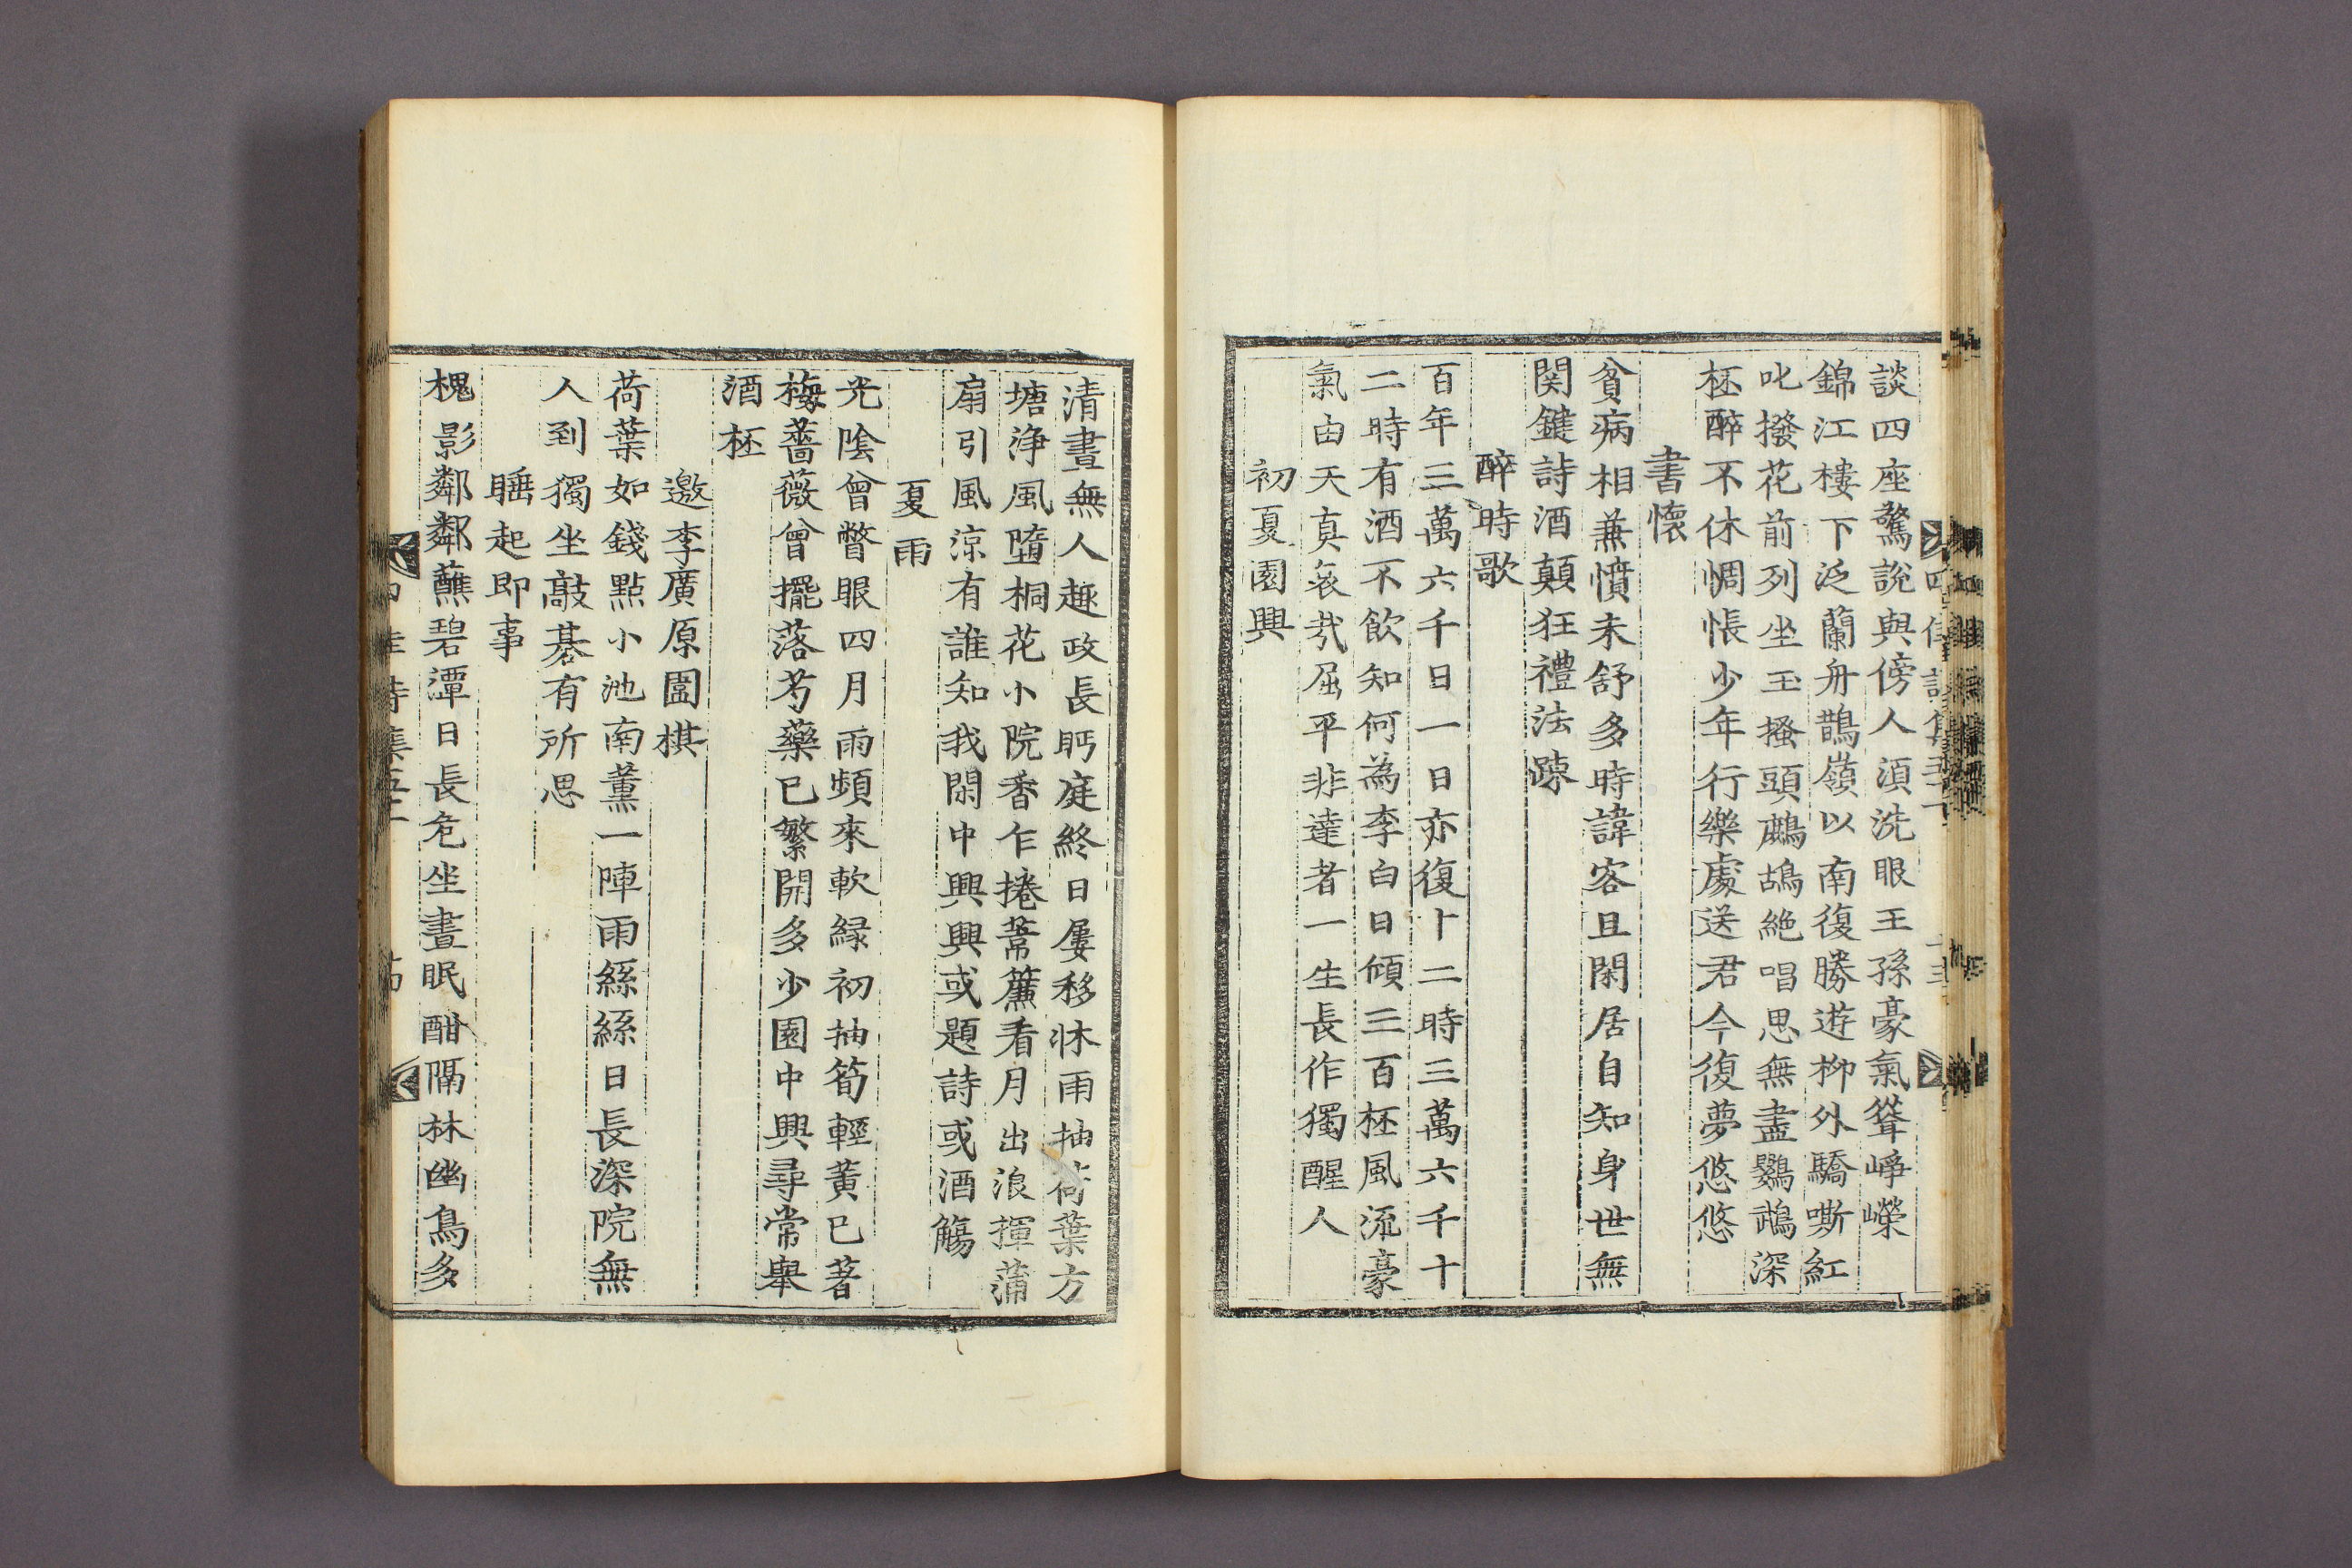 談四座驚說與傍人湏洗眼王孫豪氣聳崢嶸
錦江樓下泛蘭舟鵲嶺以南復勝遊柳外驕嘶紅
叱撥花前列坐玉搔頭鷓鴣絶唱思無盡鸚鵡深
桮醉不休惆悵少年行樂處送君今復夢悠悠
書懷
貧病相兼憤未舒多時諱客且閑居自知身世無
関鍵詩酒顛狂禮法踈
醉時歌
百年三萬六千日一日亦復十二時三萬六千十
二時有酒不飮知何為李白日傾三百桮風流豪
氣由天真哀㢤屈平非達者一生長作獨醒人
初夏園興
清晝無人趣政長眄庭終日屢移牀雨抽荷葉方
塘淨風墮桐花小院香乍捲䔥簾看月出浪揮蒲
扇引風凉有誰知我閑中興興或題詩或酒觴
夏雨
光陰曾瞥眼四月雨頻來軟緑初抽筍輕黃已著
梅薔薇曾擺落芍藥已繁開多少園中興尋常舉
酒桮
邀李廣原圍棋
荷葉如錢點小池南薰一陣雨絲絲日長深院無
人到獨坐敲碁有所思
睡起即事
槐影鄰鄰蘸碧潭日長危坐晝眠酣隔林幽鳥多